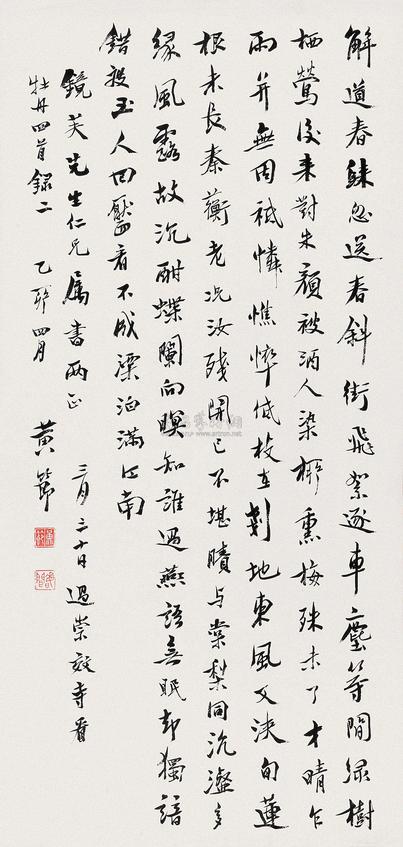 解道春歸忽送春斜街飛絮逐車塵等閒綠樹
栖鶯後來對朱顏被酒人染柳熏梅殊未了才晴乍
雨并無因祇憐憔悴低枝在剗地東風又浹旬蓮
根未長秦蘅老況汝殘開已不堪睛與棠梨同沆瀣多
緣風露故沉酣蝶闌向暝知誰過燕語無眠却獨諳
錯投玉人回靨看不成梁泊滿江南
鏡芙先生仁兄属書兩正
三月三十日過崇效寺看
牡丹四首録二
乙卯四月
黃節